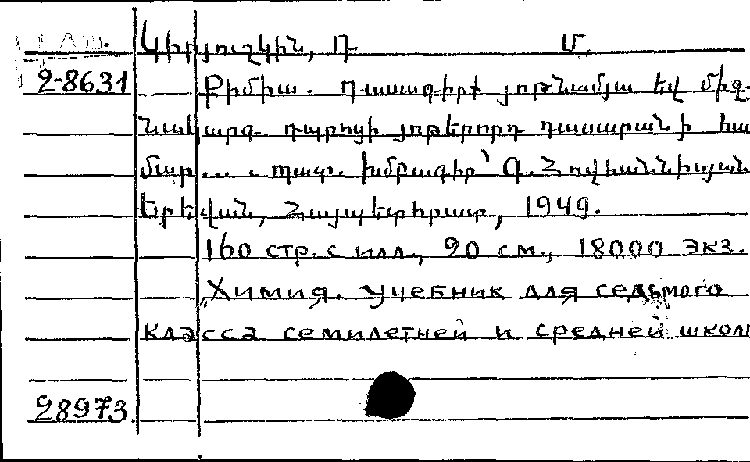 Կիրյուշկին, Դ. Մ.
2-8631 Քիմիա. Դասագիրք յոթնամյա եվ միջ-
նակարգ դպրոցի յոթերորդ դասարանի հա
մար... . պատ. խմբագիր՝ Գ. Հովհաննիսյան
Երեվան, Հայպետհրատ, 1949.
160 стр. с илл., 20 см., 18000 экз.
"Химия. Учебник для седьмого
класса семилетней и средней школ
28973